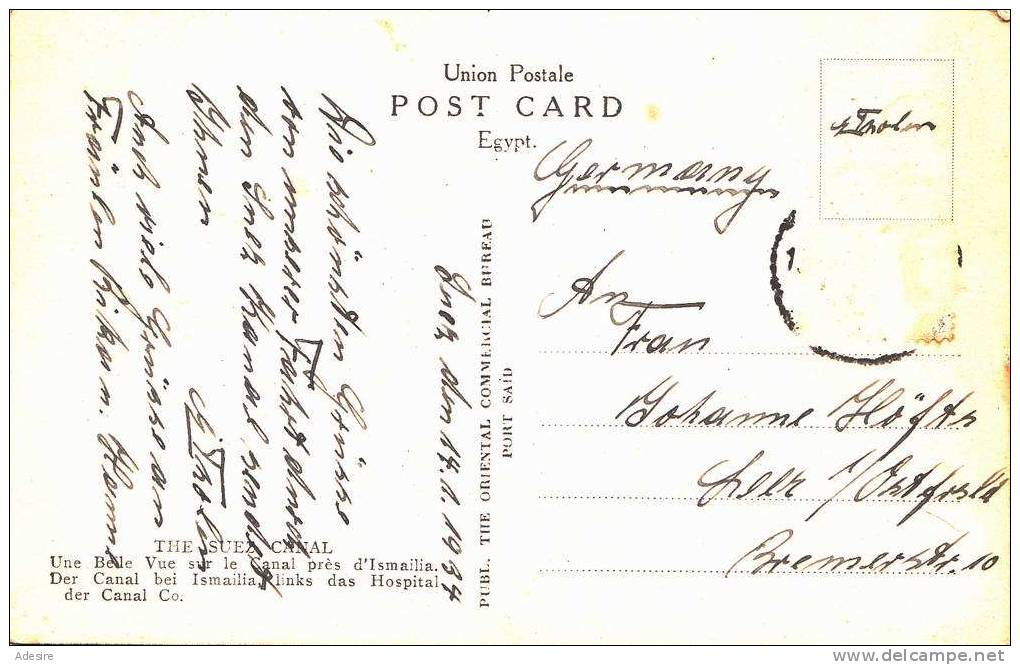 Union Postale
POST CARD
Egypt.
Germany
An
Frau
Johanne Höfts
Leer i/Ostfrsld
Bremerstr. 10
Suez den 14.1.1934
Die schönsten Grüsse
von unserer Fahrt durch
den Suez Kanal, sendet
Ihnen
Auch viele Grüsse an
Fräulen
PUBL. THE ORIENTAL COMMERCIAL BUREAU
PORT SAÏD
THE SUEZ CANAL
Une Belle Vue sur le Canal près d'Ismailia.
Der Canal bei Ismailia, links das Hospital
der Canal Co.
Adesire
http://www.delcampe.net